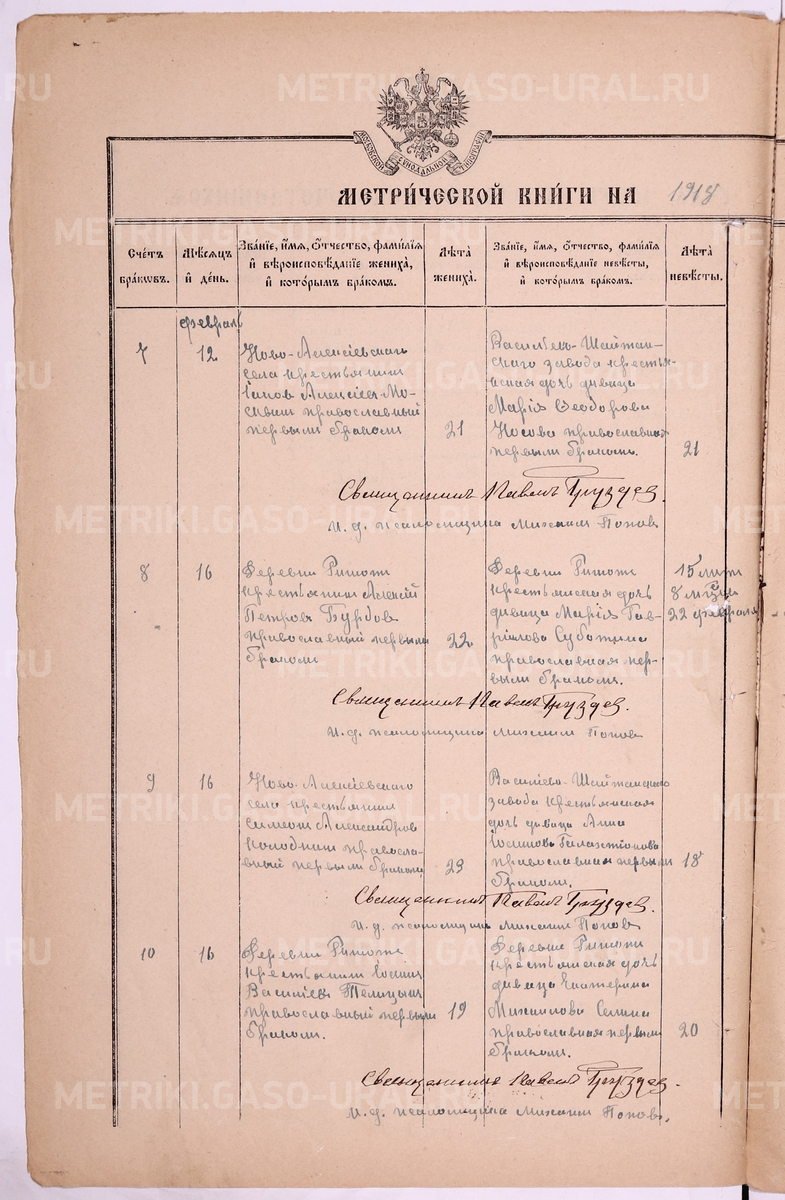 МОСКОВСКОЙ СѴНОДАЛЬНОЙ ТИПОГРАФІИ
МЕТРИ́ЧЕСКОЙ КНИ́ГИ НА 1918
Сче́тъ бра́кωвъ.
Мѣ́сяцъ и҆ де́нь.
Зва́нїе, и҆́мя, ѻ҆́тчество, фами́лїя и҆ вѣроисповѣ́данїе жениха̀, и҆ кото́рымъ бра́комъ.
Лѣ́та жениха̀.
Зва́нїе, и҆́мя, ѻ҆́тчество, фами́лїя и҆ вѣроисповѣ́данїе невѣ́сты, и҆ кото́рымъ бра́комъ.
Лѣ́та невѣ́сты.
февраль
7
12
Ново-Алексіевскаго
села крестьянинъ
Іаковъ Алексіевъ Мо-
сквинъ православный
первымъ бракомъ
21
Васильево-Шайтан-
скаго завода крестья-
нская дочь дѣвица
Марія Ѳеодорова
Носова православная
первымъ бракомъ.
21
Священникъ Павелъ Груздев.
И. д. псаломщика Михаилъ Поповъ
8
16
Деревни
крестьянинъ Алексій
Петровъ Бурбовъ
православный первымъ
бракомъ
22
Деревни
крестьянская дочь
дѣвица Марія Гав-
ріилова Суботина
православная пер-
вымъ бракомъ.
15 лѣтъ
8 мѣсяц
22 февраля
Священникъ Павелъ Груздев.
И. д. псаломщика Михаилъ Поповъ
9
16
Ново-Алексіевскаго
села крестьянинъ
Симеонъ Александров
Колоднинъ правосла-
вный первымъ бракомъ
23
Василіево-Шайтанскаго
завода крестьянская
дочь дѣвица Анна
Іосифова Галактіонова
православная первымъ
бракомъ.
18
Священникъ Павелъ Груздев.
И. д. псаломщика Михаилъ Поповъ
10
16
Деревни
крестьянинъ Іосифъ
Василіевъ Телицынъ
православный первымъ
бракомъ.
19
Деревни
крестьянская дочь
дѣвица Екатерина
Михаилова Селина
православная первымъ
бракомъ.
20
Священникъ Павелъ Груздев.
И. д. псаломщика Михаилъ Поповъ.
METRIKI.GASO-URAL.RU